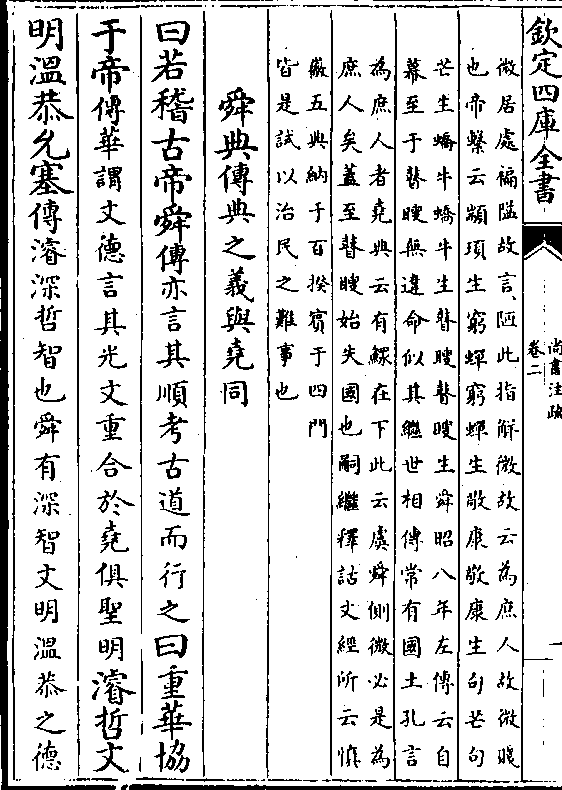 欽定四庫全書
尚書注疏
卷二
一
微居處褊隘故言陋此指解微故云為庶人故微賤
也帝繫云顓頊生窮蟬窮蟬生敬康敬康生句芒句
芒生蟜牛蟜牛生瞽瞍瞽瞍生舜昭八年左傳云自
幕至于瞽瞍無違命似其繼世相傳常有國土孔言
為庶人者堯典云有鰥在下此云虞舜側微必是為
庶人矣蓋至瞽瞍始失國也嗣繼釋詁文經所云慎
徽五典納于百揆賓于四門
皆是試以治民之難事也
舜典傳典之義與堯同
曰若稽古帝舜傳亦言其順考古道而行之曰重華協
于帝傳華謂文德言其光文重合於堯俱聖明濬哲文
明溫恭允塞傳濬深哲智也舜有深智文明溫恭之德